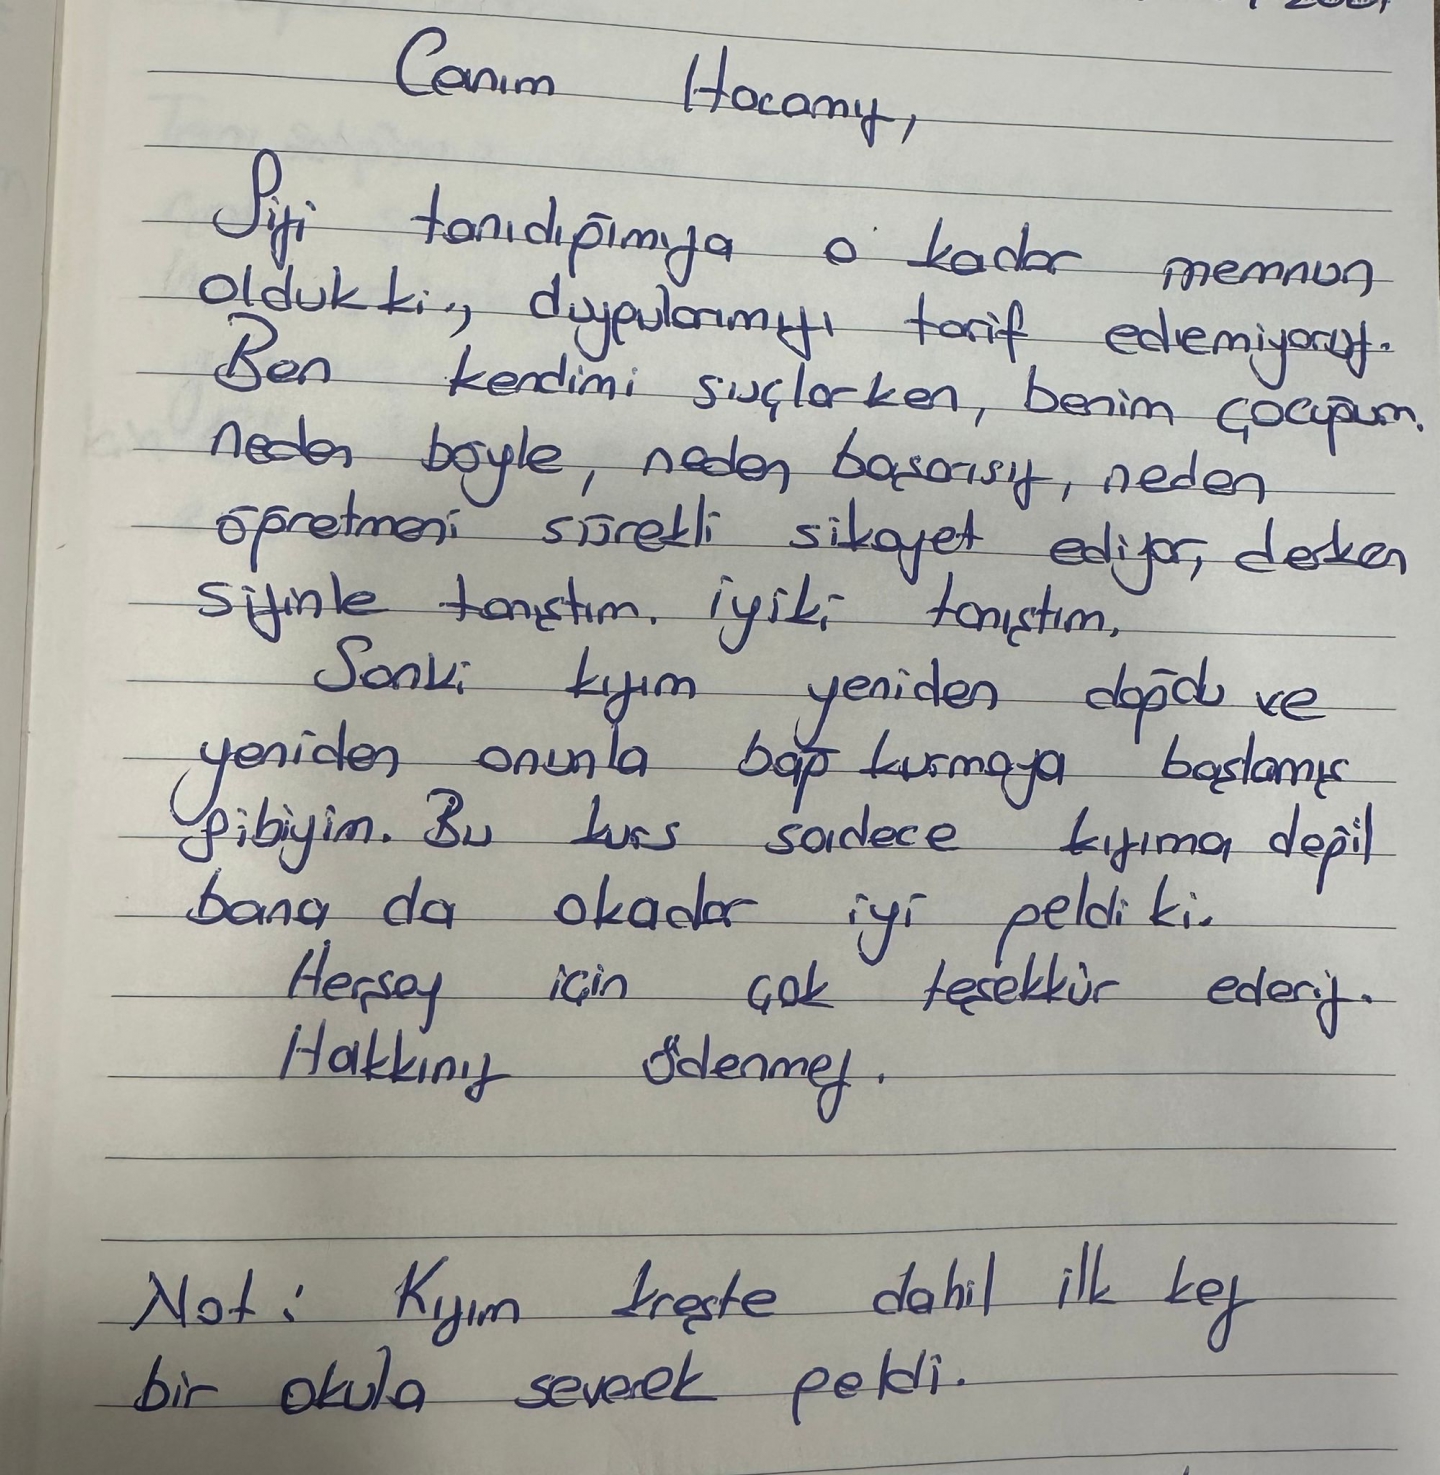 Canım Hocamız,
Sizi tanıdığımıza o kadar memnun
olduk ki.., duygularımızı tarif edemiyoruz.
Ben kendimi suçlarken, benim çocuğum
neden böyle, neden başarısız, neden
öğretmeni sürekli sikayet ediyor, derken
sizinle tanıştım. iyiki tanıştım.
Sanki kızım yeniden doğdu ve
yeniden onunla bağ kurmaya başlamış
gibiyim. Bu kurs sadece kızıma değil
bana da okadar iyi geldi ki.
Herşey için çok teşekkür ederiz.
Hakkınız ödenmez.
Not: Kızım kreşte dahil ilk kez
bir okula severek geldi.